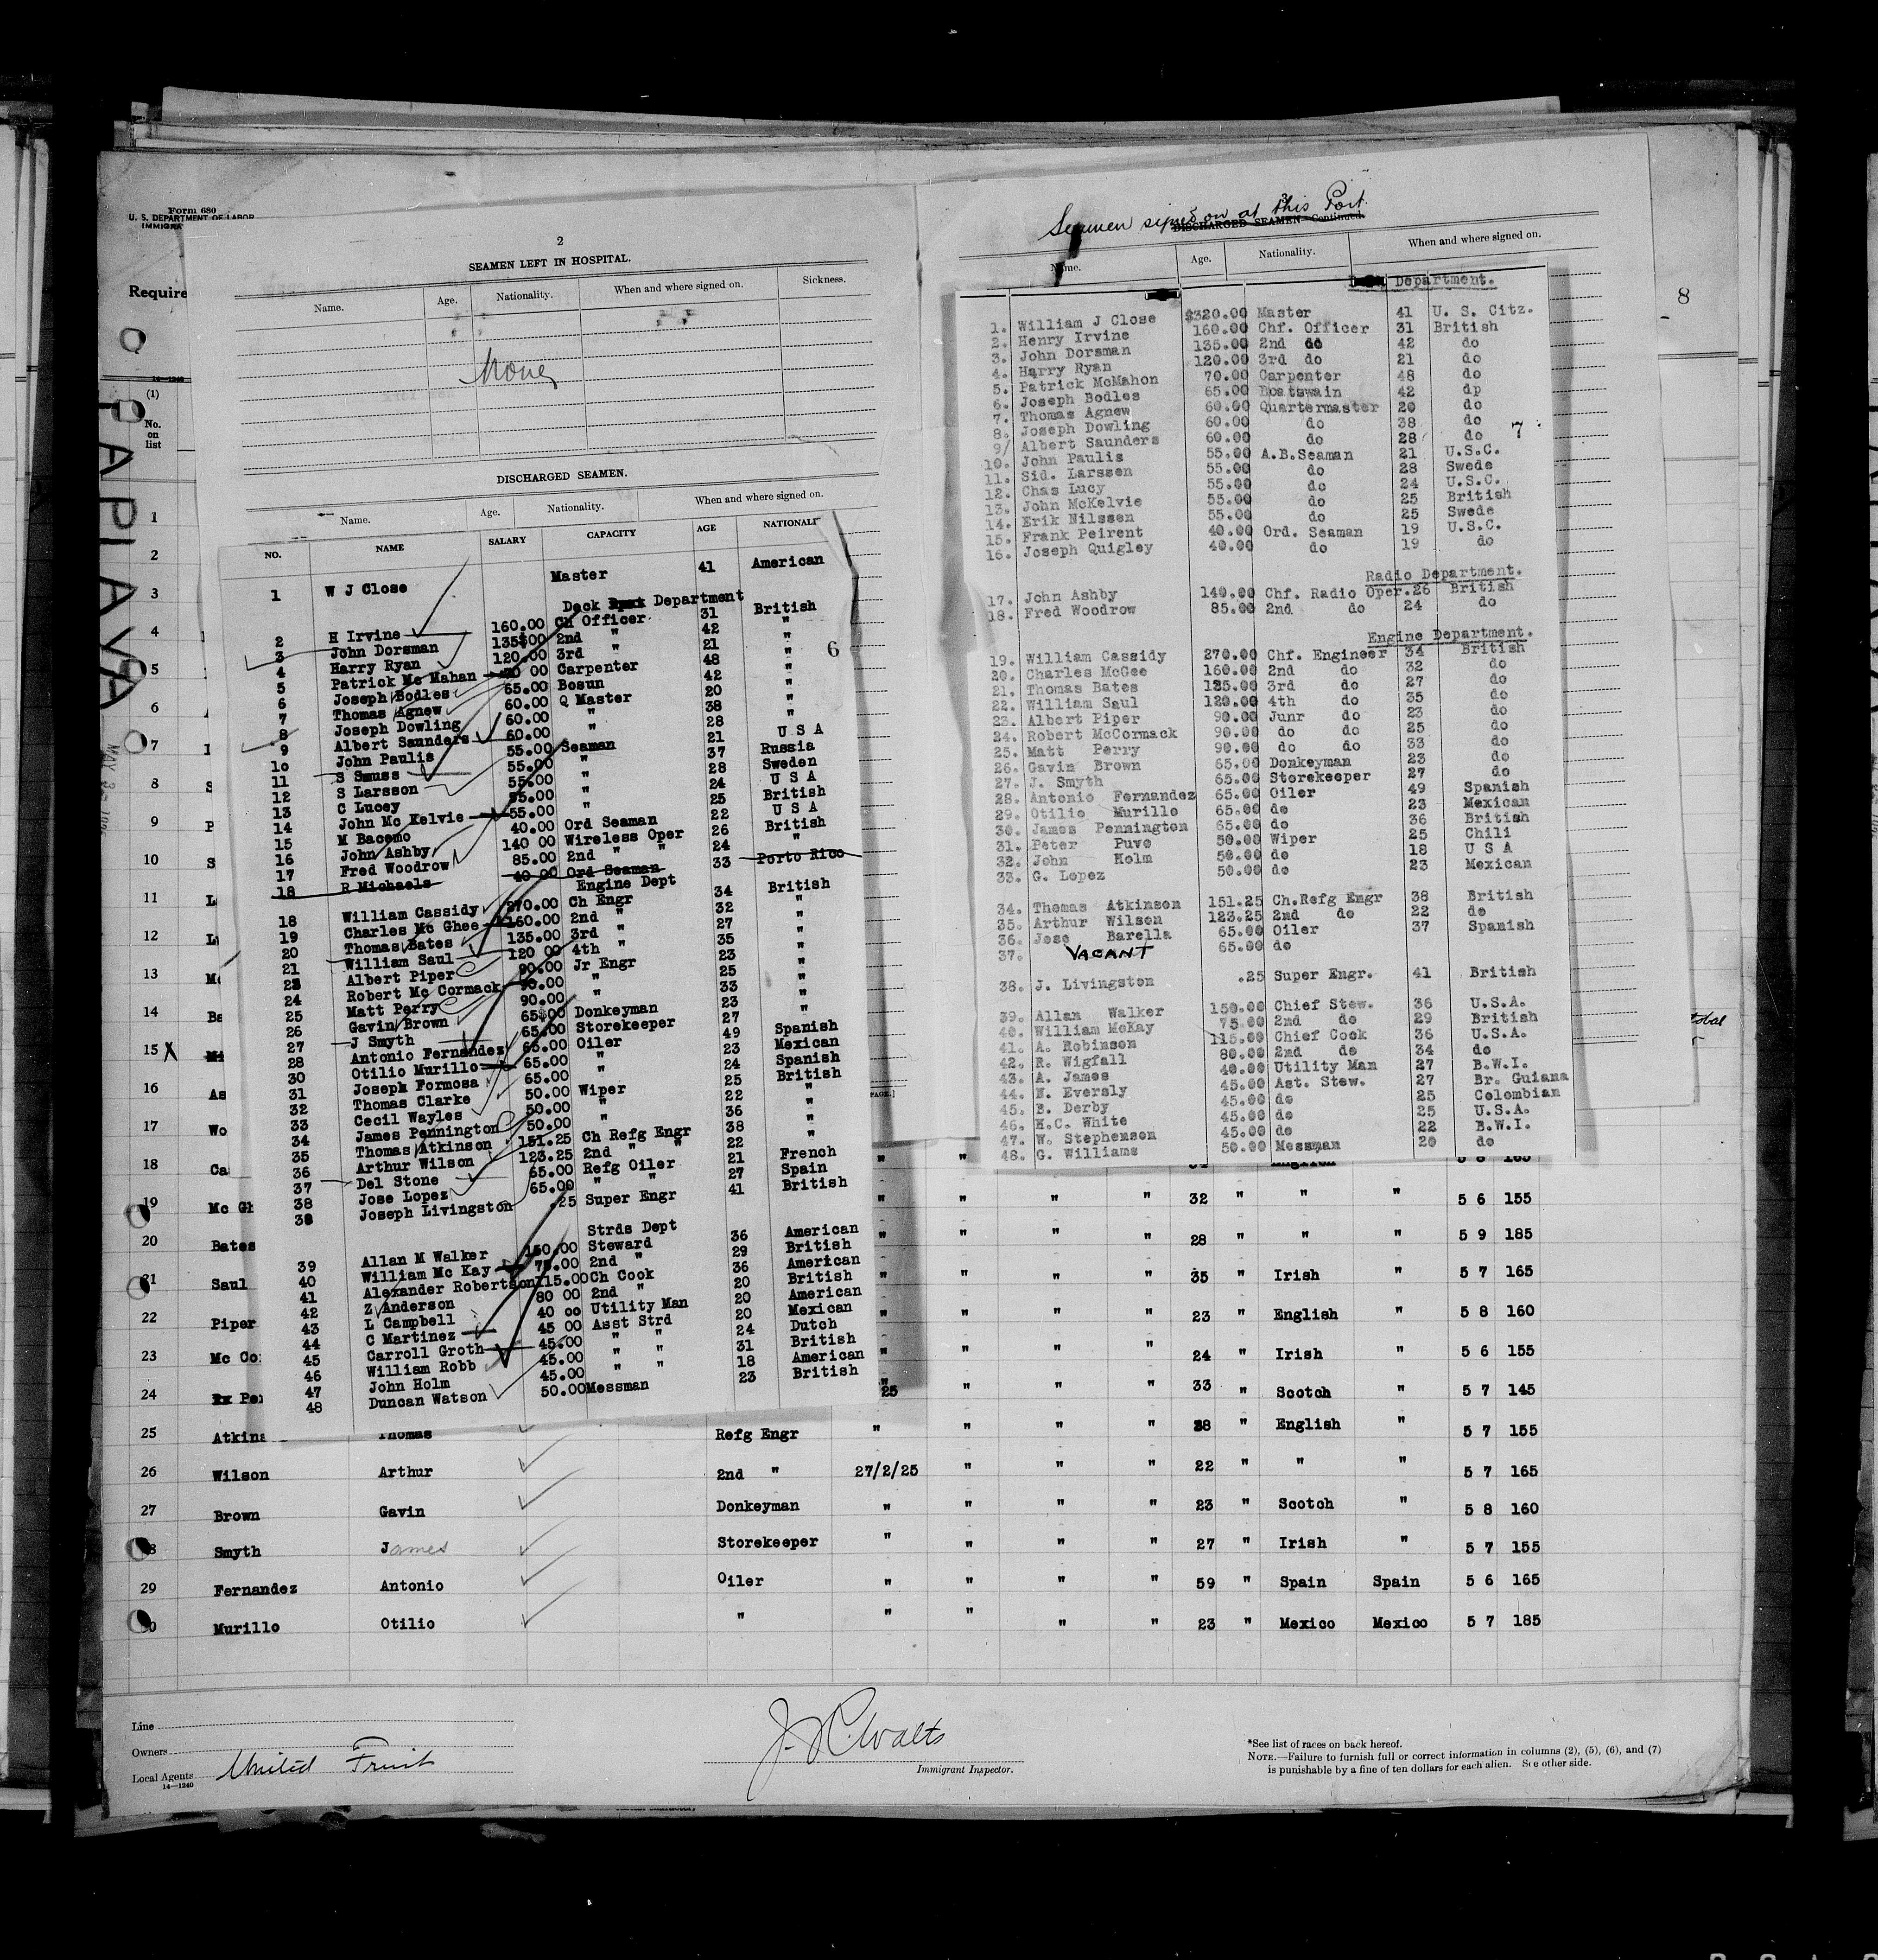 Form 680
U. S. DEPARTMENT OF LABOR
IMMIGRA
Require
14—1240
(1)
No.
on
list
TAPIAVA
2
SEAMEN LEFT IN HOSPITAL.
Name. Age. Nationality. When and where signed on. Sickness.
None
DISCHARGED SEAMEN.
Name. Age. Nationality. When and where signed on.
NO. NAME SALARY CAPACITY AGE NATIONALI
1 W J Close Master 41 American
Deck Department
2 H Irvine 160.00 Ch Officer 31 British
3 John Dorsman 135$00 2nd " 42 "
4 Harry Ryan 120.00 3rd " 21 "
5 Patrick Mc Mahan 70 00 Carpenter 48 "
6 Joseph Bodles 65.00 Bosun 42 "
7 Thomas Agnew 60.00 Q Master 20 "
8 Joseph Dowling 60.00 " 38 "
9 Albert Saunders 60.00 " 28 "
10 John Paulis 55.00 Seaman 21 U S A
11 S Smuss 55.00 " 37 Russia
12 S Larsson 55.00 " 28 Sweden
13 C Lucey 55.00 " 24 U S A
14 John Mc Kelvie 55.00 " 25 British
15 M Bacemo 40.00 Ord Seaman 22 U S A
16 John Ashby 140 00 Wireless Oper 26 British
17 Fred Woodrow 85.00 2nd " " 24 "
18 R Michaels 40 00 Ord Seaman 33 Porto Rico
Engine Dept
18 William Cassidy 270.00 Ch Engr 34 British
19 Charles Mc Ghee 160.00 2nd " 32 "
20 Thomas Bates 135.00 3rd " 27 "
21 William Saul 120 00 4th " 35 "
23 Albert Piper 90.00 Jr Engr 23 "
24 Robert Mc Cormack 90.00 " 25 "
25 Matt Perry 90.00 " 33 "
26 Gavin Brown 65$00 Donkeyman 23 "
27 J Smyth 65.00 Storekeeper 27 "
28 Antonio Fernandez 65.00 Oiler 49 Spanish
30 Otilio Murillo 65.00 " 23 Mexican
31 Joseph Formosa 65.00 " 24 Spanish
32 Thomas Clarke 50.00 Wiper 25 British
33 Cecil Wayles 50.00 " 22 "
34 James Pennington 50.00 " 36 "
35 Thomas Atkinson 151.25 Ch Refg Engr 38 "
36 Arthur Wilson 123.25 2nd " " 22 "
37 Del Stone 65.00 Refg Oiler 21 French
38 Jose Lopez 65.00 " " 27 Spain
38 Joseph Livingston .25 Super Engr 41 British
Strds Dept
39 Allan M Walker 150.00 Steward 36 American
40 William Mc Kay 75.00 2nd " 29 British
41 Alexander Robertson 115.00 Ch Cook 36 American
42 Z Anderson 80 00 2nd " 20 British
43 L Campbell 40 00 Utility Man 20 American
44 C Martinez 45 00 Asst Strd 20 Mexican
45 Carroll Groth 45.00 " " 24 Dutch
46 William Robb 45.00 " " 31 British
47 John Holm 45.00 " " 18 American
48 Duncan Watson 50.00 Messman 23 British
6
Seamen signed on at this Port.
DISCHARGED SEAMEN—Continued.
Name. Age. Nationality. When and where signed on.
Department.
1. William J Close $320.00 Master 41 U. S. Citz.
2. Henry Irvine 160.00 Chf. Officer 31 British
3. John Dorsman 135.00 2nd do 42 do
4. Harry Ryan 120.00 3rd do 21 do
5. Patrick McMahon 70.00 Carpenter 48 do
6. Joseph Bodles 65.00 Boatswain 42 dp
7. Thomas Agnew 60.00 Quartermaster 20 do
8. Joseph Dowling 60.00 do 38 do
9/ Albert Saunders 60.00 do 28 do
10. John Paulis 55.00 A.B.Seaman 21 U.S.C.
11. Sid. Larssen 55.00 do 28 Swede
12. Chas Lucy 55.00 do 24 U.S.C.
13. John McKelvie 55.00 do 25 British
14. Erik Nilssen 55.00 do 25 Swede
15. Frank Peirent 40.00 Ord. Seaman 19 U.S.C.
16. Joseph Quigley 40.00 do 19 do
7
Radio Department.
17. John Ashby 140.00 Chf. Radio Oper. 26 British
18. Fred Woodrow 85.00 2nd do 24 do
Engine Department.
19. William Cassidy 270.00 Chf. Engineer 34 British
20. Charles McGee 160.00 2nd do 32 do
21. Thomas Bates 135.00 3rd do 27 do
22. William Saul 120.00 4th do 35 do
23. Albert Piper 90.00 Junr do 23 do
24. Robert McCormack 90.00 do do 25 do
25. Matt Perry 90.00 do do 33 do
26. Gavin Brown 65.00 Donkeyman 23 do
27. J. Smyth 65.00 Storekeeper 27 do
28. Antonio Fernandez 65.00 Oiler 49 Spanish
29. Otilio Murillo 65.00 do 23 Mexican
30. James Pennington 65.00 do 36 British
31. Peter Puvo 50.00 Wiper 25 Chili
32. John Holm 50.00 do 18 U S A
33. G. Lopez 50.00 do 23 Mexican
34. Thomas Atkinson 151.25 Ch.Refg Engr 38 British
35. Arthur Wilson 123.25 2nd do 22 do
36. Jose Barella 65.00 Oiler 37 Spanish
37. VACANT 65.00 do
38. J. Livingston .25 Super Engr. 41 British
39. Allan Walker 150.00 Chief Stew. 36 U.S.A.
40. William McKay 75.00 2nd do 29 British
41. A. Robinson 115.00 Chief Cook 36 U.S.A.
42. R. Wigfall 80.00 2nd do 34 do
43. A. James 40.00 Utility Man 27 B.W.I.
44. N. Eversly 45.00 Ast. Stew. 27 Br. Guiana
45. E. Derby 45.00 do 25 Colombian
46. H.C. White 45.00 do 25 U.S.A.
47. W. Stephenson 45.00 do 22 B.W.I.
48. G. Williams 50.00 Messman 20 do
8
tobal
PAGE.]
1
2
3
4
5
6
7
8 S
9 P
10 S
11 L
12 L
13 Mc
14 Ba
15 X
16 As
17 Wo
18 Ca
19 Mc Gh " " " 32 " " " 5 6 155
20 Bates " " " " 28 " " " 5 9 185
21 Saul " " " " 35 " Irish " 5 7 165
22 Piper " " " " 23 " English " 5 8 160
23 Mc Co " " " 24 " Irish " 5 6 155
24 Pe 25 " " " 33 " Scotch " 5 7 145
25 Atkins Thomas Refg Engr " " " " 38 " English " 5 7 155
26 Wilson Arthur 2nd " 27/2/25 " " " 22 " " " 5 7 165
27 Brown Gavin Donkeyman " " " " 23 " Scotch " 5 8 160
28 Smyth James Storekeeper " " " " 27 " Irish " 5 7 155
29 Fernandez Antonio Oiler " " " " 59 " Spain Spain 5 6 165
30 Murillo Otilio " " " " " 23 " Mexico Mexico 5 7 185
Line
Owners
Local Agents United Fruit
14—1240
J. R. Walts
Immigrant Inspector.
*See list of races on back hereof.
NOTE.—Failure to furnish full or correct information in columns (2), (5), (6), and (7)
is punishable by a fine of ten dollars for each alien. See other side.